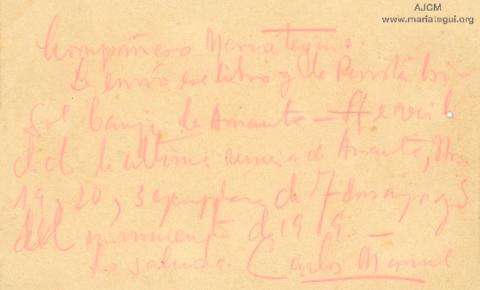 AJCM
www.mariategui.org
Compañero Mariátegui.
Le envío ese libro y la Revista
por canje de Amauta – He reci
bido la última remesa de Amauta, Nos
19, 20, y 3 ejemplares de 7 ensayos
del de 1919.
Lo saluda. Carlos Manuel